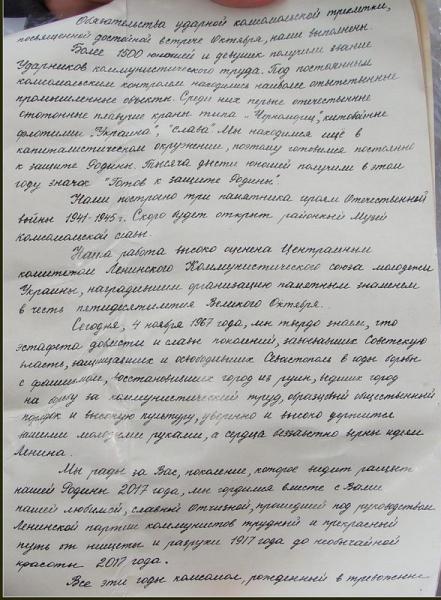 Обязательства ударной комсомольской трилетки,
посвященной достойной встрече Октября, нами выполнены.
Более 1500 юношей и девушек получили звание
Ударников коммунистического труда. Под постоянным
комсомольским контролем находились наиболее ответственные
промышленные объекты. Среди них первые отечественные
стотонные плавучие краны типа „Черноморец", китобойные
флотилии „Украина", "Слава". Мы находимся ещё в
капиталистическом окружении, поэтому готовимся постоянно
к защите Родины. Тысяча двести юношей получили в этом
году значок "Готов к защите Родины".
Нами построено три памятника героям Отечественной
войны 1941-1945 г. Скоро будет открыт районный Музей
комсомольской славы.
Наша работа высоко оценена Центральным
комитетом Ленинского Коммунистического союза молодежи
Украины, наградившим организацию памятным знаменем
в честь пятидесятилетия Великого Октября.
Сегодня, 4 ноября 1967 года, мы твердо знаем, что
эстафета доблести и славы поколений, завоевавших Советскую
власть, защищавших и освободивших Севастополь в годы борьбы
с фашизмом, восстановивших город из руин, ведших город
на борьбу за коммунистический труд, образцовый общественный
порядок и высокую культуру, уверенно и высоко держится
нашими молодыми руками, а сердца беззаветно верны идеям
Ленина.
Мы рады за Вас, поколение, которое видит расцвет
нашей Родины 2017 года, мы гордимся вместе с Вами
нашей любимой, славной Отчизной, прошедшей под руководством
Ленинской партии коммунистов трудный и прекрасный
путь от нищеты и разрухи 1917 года до необычайной
красоты 2017 года.
Все эти годы комсомол, рожденный в тревожные